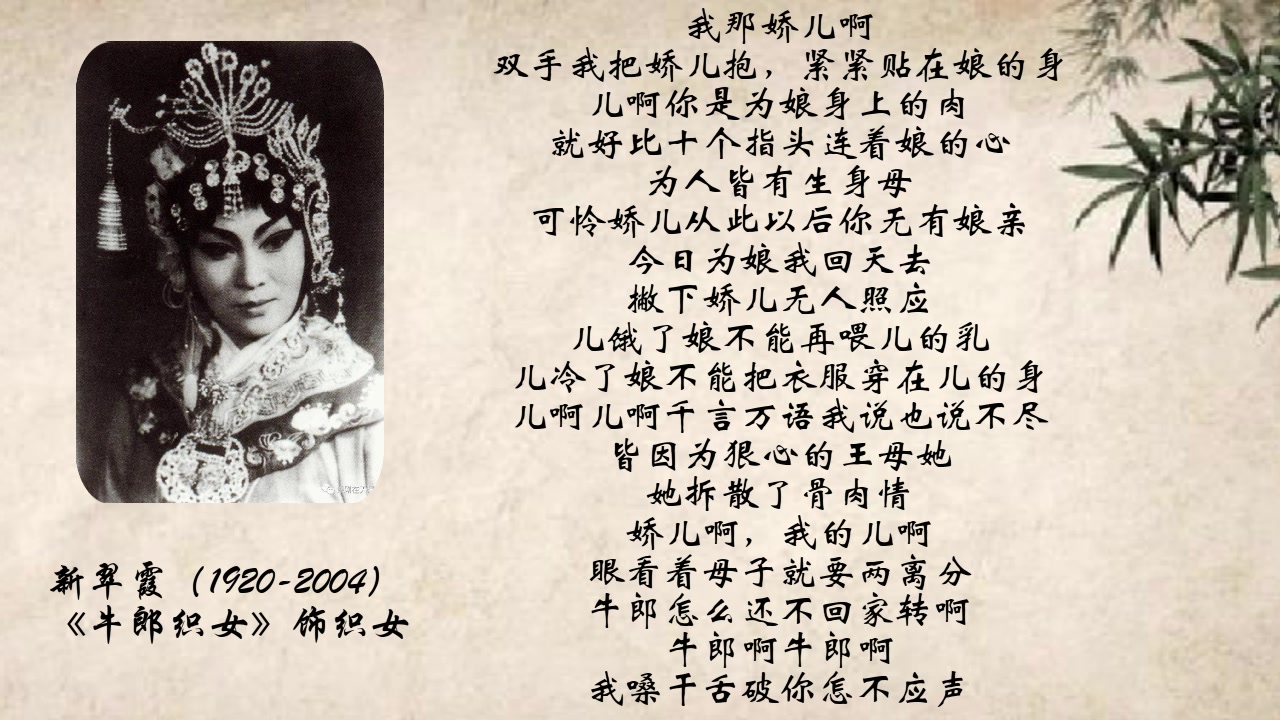 我那娇儿啊
双手我把娇儿抱，紧紧贴在娘的身
儿啊你是为娘身上的肉
就好比十个指头连着娘的心
为人皆有生身母
可怜娇儿从此以后你无有娘亲
今日为娘我回天去
撇下娇儿无人照应
儿饿了娘不能再喂儿的乳
儿冷了娘不能把衣服穿在儿的身
儿啊儿啊千言万语我说也说不尽
皆因为狠心的王母她
她拆散了骨肉情
娇儿啊，我的儿啊
眼看着母子就要两离分
牛郎怎么还不回家转啊
牛郎啊牛郎啊
我嗓干舌破你怎不应声
新翠霞（1920-2004）
《牛郎织女》饰织女